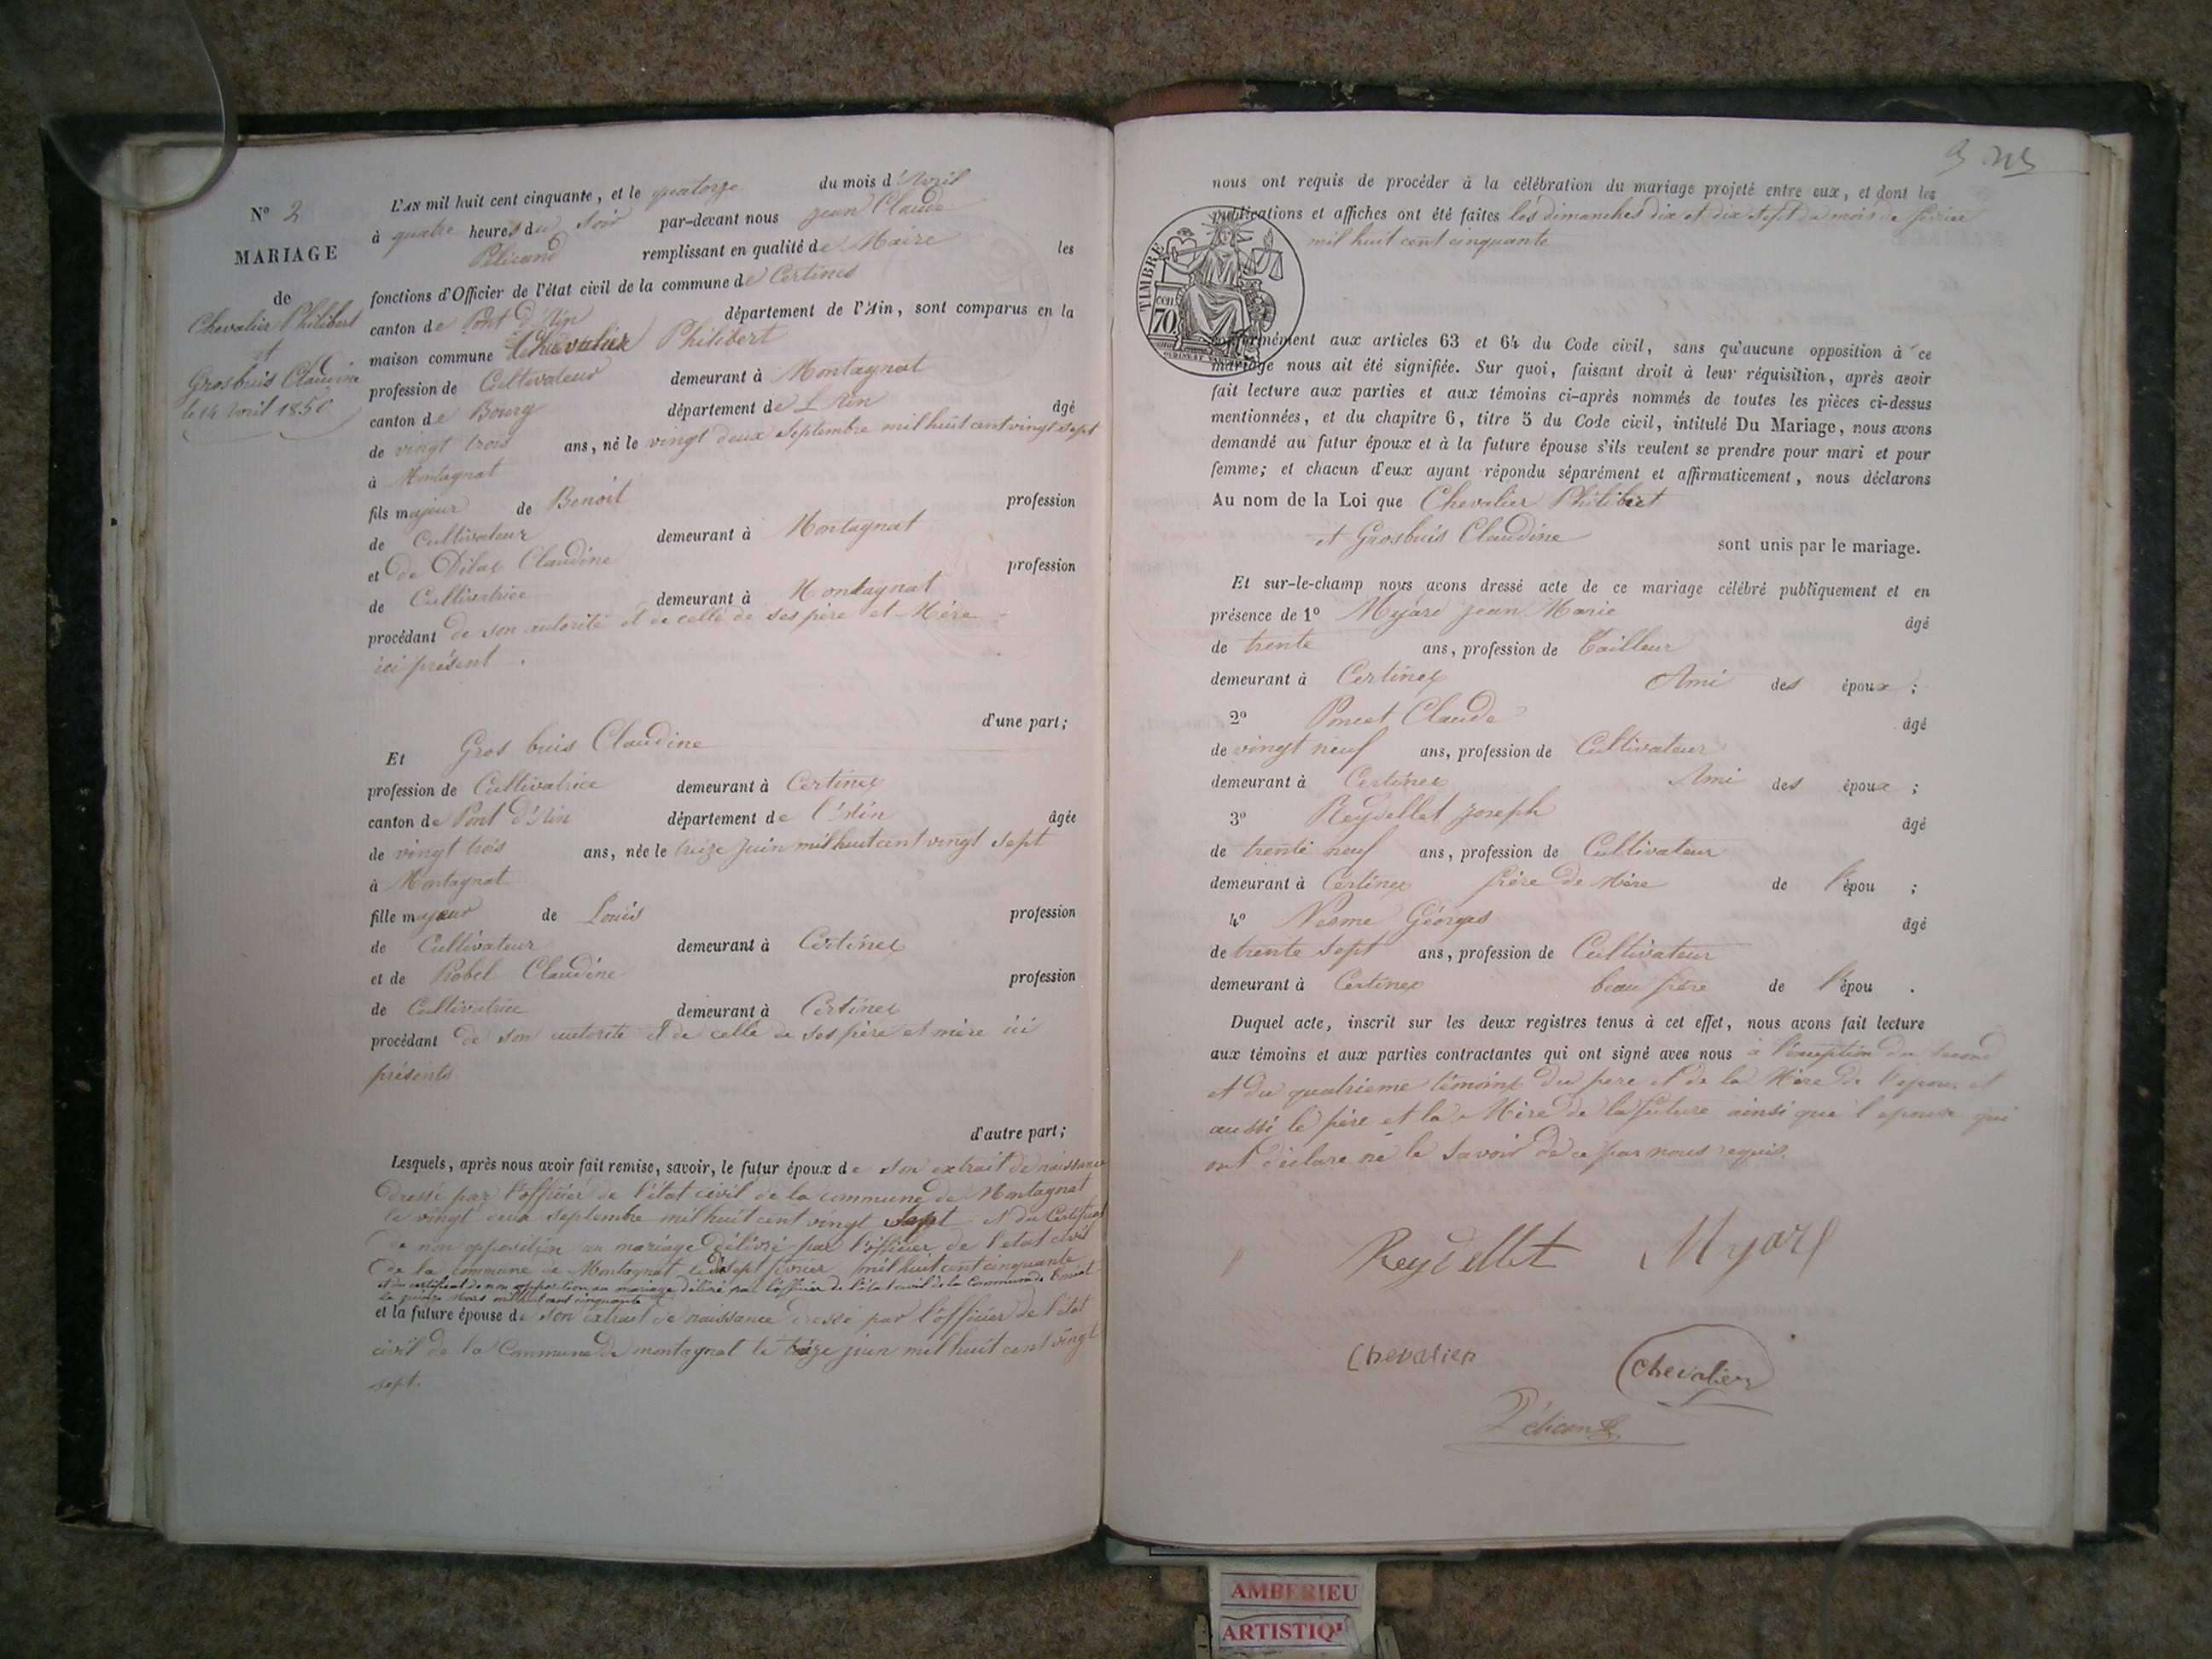 N° 2
MARIAGE
de
Chevalier Philibert
et
Grosbuis Claudine
le 14 Avril 1850
L'AN mil huit cent cinquante, et le quatorze du mois d'Avril
à quatre heures du Soir par-devant nous jean Claude
Pélicand remplissant en qualité de Maire les
fonctions d'Officier de l'état civil de la commune de Certines
canton de Pont d'Ain département de l'Ain, sont comparus en la
maison commune Chevalier Philibert
profession de Cultivateur demeurant à Montagnat
canton de Bourg département de L'Ain âgé
de vingt trois ans, né le vingt deux Septembre mil huit cent vingt sept
à Montagnat
fils majeur de Benoit profession
de Cultivateur demeurant à Montagnat
et de Claudine profession
de Cultivatrice demeurant à Montagnat
procédant de son autorité et de celle de ses père et Mère
ici présent.
d'une part;
Et Gros buis Claudine
profession de Cultivatrice demeurant à Certines
canton de Pont d'Ain département de l'Ain âgée
de vingt trois ans, née le treize juin mil huit cent vingt sept
à Montagnat
fille majeur de Louis profession
de Cultivateur demeurant à Certines
et de Robel Claudine profession
de Cultivatrice demeurant à Certines
procédant de son autorité et de celle de ses père et mère ici
présents
d'autre part;
Lesquels, après nous avoir fait remise, savoir, le futur époux de son extrait de naissance
dressé par l'officier de l'état civil de la commune de Montagnat
le vingt deux septembre mil huit cent vingt sept et du Certificat
de non opposition au mariage délivré par l'officier de l'état civil
de la commune de Montagnat le dix sept février mil huit cent cinquante
et du certificat de non opposition au mariage délivré par l'officier de l'état civil de la Commune de
le quinze Mars mil huit cent cinquante
et la future épouse de son extrait de naissance dressé par l'officier de l'état
civil de la Commune de montagnat le treize juin mil huit cent vingt
sept.
nous ont requis de procéder à la célébration du mariage projeté entre eux, et dont les
publications et affiches ont été faites les dimanches dix et dix sept du mois de février
mil huit cent cinquante
TIMBRE
70
conformément aux articles 63 et 64 du Code civil, sans qu'aucune opposition à ce
mariage nous ait été signifiée. Sur quoi, faisant droit à leur réquisition, après avoir
fait lecture aux parties et aux témoins ci-après nommés de toutes les pièces ci-dessus
mentionnées, et du chapitre 6, titre 5 du Code civil, intitulé Du Mariage, nous avons
demandé au futur époux et à la future épouse s'ils veulent se prendre pour mari et pour
femme; et chacun d'eux ayant répondu séparément et affirmativement, nous déclarons
Au nom de la Loi que Chevalier Philibert
et Grosbuis Claudine sont unis par le mariage.
Et sur-le-champ nous avons dressé acte de ce mariage célébré publiquement et en
présence de 1° Myard jean Marie âgé
de trente ans, profession de Tailleur
demeurant à Certines Ami des époux;
2° Poncet Claude âgé
de vingt neuf ans, profession de Cultivateur
demeurant à Certines Ami des époux;
3° Reydellet joseph âgé
de trente neuf ans, profession de Cultivateur
demeurant à Certines frère de Mère de l'épou ;
4° Nesme Géorges âgé
de trente sept ans, profession de Cultivateur
demeurant à Certines beau frère de l'épou .
Duquel acte, inscrit sur les deux registres tenus à cet effet, nous avons fait lecture
aux témoins et aux parties contractantes qui ont signé avec nous à l'éxception du second
et du quatrieme témoins du pere et de la Mère de l'epoux et
aussi le père et la Mère de la future ainsi que l'epouse qui
ont déclaré ne le savoir de ce par nous requis.
Reydellet Myard
Chevalier Chevalier
Pélicand
AMBERIEU
ARTISTIQ